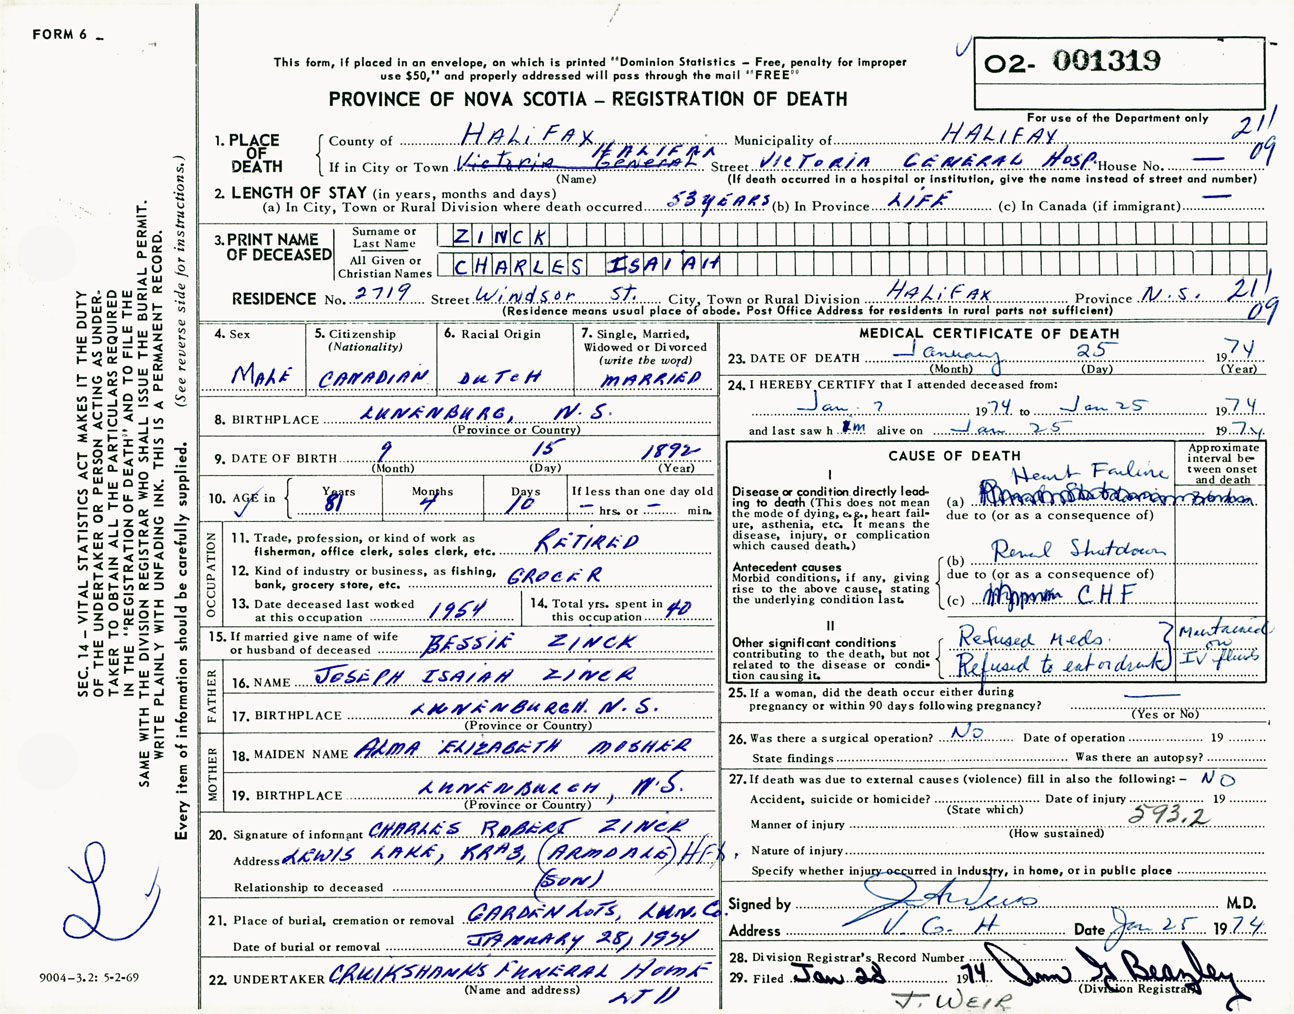 FORM 6
This form, if placed in an envelope, on which is printed "Dominion Statistics – Free, penalty for improper
use $50," and properly addressed will pass through the mail "FREE"
PROVINCE OF NOVA SCOTIA – REGISTRATION OF DEATH
02- 001319
For use of the Department only
211
09
1. PLACE OF DEATH
County of HALIFAX Municipality of HALIFAX
If in City or Town Victoria General HALIFAX Street VICTORIA GENERAL HOSP. House No. —
(Name) (If death occurred in a hospital or institution, give the name instead of street and number)
2. LENGTH OF STAY (in years, months and days)
(a) In City, Town or Rural Division where death occurred 53 YEARS (b) In Province LIFE (c) In Canada (if immigrant) —
3. PRINT NAME OF DECEASED
Surname or Last Name ZINCK
All Given or Christian Names CHARLES ISAIAH
RESIDENCE No. 2719 Street Windsor St. City, Town or Rural Division HALIFAX Province N.S. 211
09
(Residence means usual place of abode. Post Office Address for residents in rural parts not sufficient)
4. Sex
MALE
5. Citizenship
(Nationality)
CANADIAN
6. Racial Origin
DUTCH
7. Single, Married,
Widowed or Divorced
(write the word)
MARRIED
8. BIRTHPLACE LUNENBURG, N.S.
(Province or Country)
9. DATE OF BIRTH 9 15 1892
(Month) (Day) (Year)
10. AGE in Years 81 Months 4 Days 10 If less than one day old
– hrs. or – min.
OCCUPATION
11. Trade, profession, or kind of work as
fisherman, office clerk, sales clerk, etc. RETIRED
12. Kind of industry or business, as fishing,
bank, grocery store, etc. GROCER
13. Date deceased last worked
at this occupation 1954
14. Total yrs. spent in
this occupation 40
15. If married give name of wife
or husband of deceased BESSIE ZINCK
FATHER
16. NAME JOSEPH ISAIAH ZINCK
17. BIRTHPLACE LUNENBURGH. N.S.
(Province or Country)
MOTHER
18. MAIDEN NAME ALMA ELIZABETH MOSHER
19. BIRTHPLACE LUNENBURGH, N.S.
(Province or Country)
20. Signature of informant CHARLES ROBERT ZINCK
Address LEWIS LAKE, RR#3, (ARMDALE) HFX.
Relationship to deceased (SON)
21. Place of burial, cremation or removal GARDEN LOTS, LUN. CO.
Date of burial or removal JANUARY 28, 1974
22. UNDERTAKER CRUIKSHANKS FUNERAL HOME
(Name and address)
LTD
MEDICAL CERTIFICATE OF DEATH
23. DATE OF DEATH January 25 1974
(Month) (Day) (Year)
24. I HEREBY CERTIFY that I attended deceased from:
Jan. 7 1974 to Jan 25 1974
and last saw him alive on Jan 25 1974
CAUSE OF DEATH
Approximate
interval be-
tween onset
and death
I
Disease or condition directly lead-
ing to death (This does not mean
the mode of dying, e.g., heart fail-
ure, asthenia, etc. It means the
disease, injury, or complication
which caused death.)
Heart Failure
(a)
due to (or as a consequence of)
Antecedent causes
Morbid conditions, if any, giving
rise to the above cause, stating
the underlying condition last.
(b) Renal Shutdown
due to (or as a consequence of)
(c) CHF
II
Other significant conditions
contributing to the death, but not
related to the disease or condi-
tion causing it.
Refused Meds.
Refused to eat or drink
Maintained
on
IV fluids
25. If a woman, did the death occur either during
pregnancy or within 90 days following pregnancy? —
(Yes or No)
26. Was there a surgical operation? No Date of operation 19
State findings Was there an autopsy?
27. If death was due to external causes (violence) fill in also the following: – NO
Accident, suicide or homicide? Date of injury 19
(State which)
593.2
Manner of injury
(How sustained)
Nature of injury
Specify whether injury occurred in industry, in home, or in public place
Signed by M.D.
Address V. G. H Date Jan 25 1974
28. Division Registrar's Record Number
29. Filed Jan 28 1974 Ann G Beazley
(Division Registrar)
J. WEIR
SEC. 14 – VITAL STATISTICS ACT MAKES IT THE DUTY
OF THE UNDERTAKER OR PERSON ACTING AS UNDER-
TAKER TO OBTAIN ALL THE PARTICULARS REQUIRED
IN THE "REGISTRATION OF DEATH" AND TO FILE THE
SAME WITH THE DIVISION REGISTRAR WHO SHALL ISSUE THE BURIAL PERMIT.
WRITE PLAINLY WITH UNFADING INK. THIS IS A PERMANENT RECORD.
Every item of information should be carefully supplied. (See reverse side for instructions.)
9004-3.2: 5-2-69